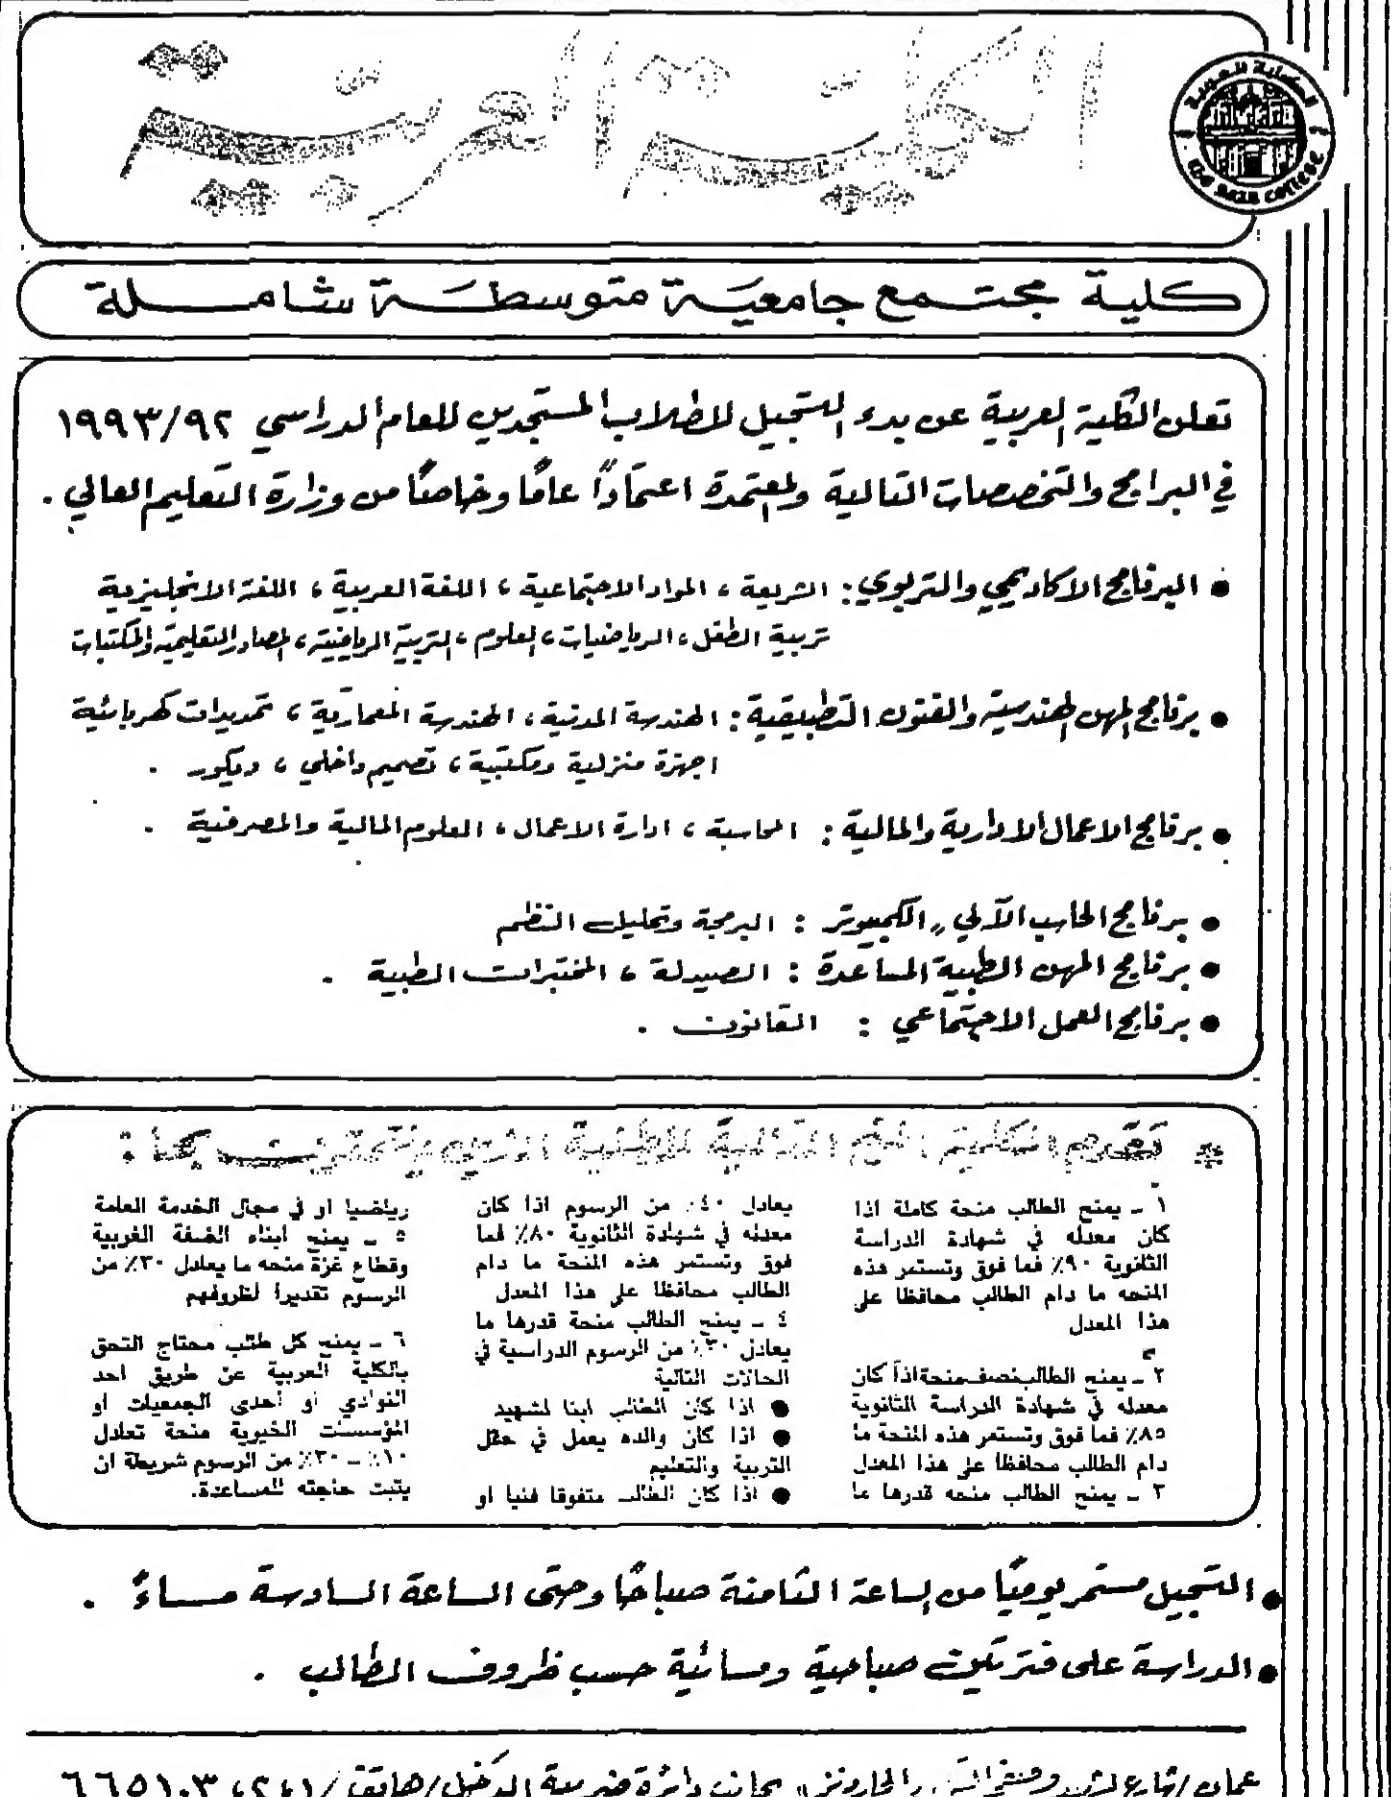 الكلية العربية
الكلية العربية
the arab college
كلية مجتمع جامعية متوسطة شاملة
تعلن الكلية العربية عن بدء التسجيل للطلاب المستجدين للعام الدراسي ١٩٩٣/٩٢
في البرامج والتخصصات التالية والمعتمدة اعتماداً عاماً وخاصاً من وزارة التعليم العالي .
● البرنامج الاكاديمي والتربوي : الشريعة ، المواد الاجتماعية ، اللغة العربية ، اللغة الانجليزية
تربية الطفل ، الرياضيات ، العلوم ، التربية الرياضية ، المصادر التعليمية والمكتبات
● برنامج المهن الهندسية والفنون التطبيقية : الهندسة المدنية ، الهندسة المعمارية ، تمديدات كهربائية
اجهزة منزلية ومكتبية ، تصميم داخلي ، ديكور .
● برنامج الاعمال الادارية والمالية : المحاسبة ، ادارة الاعمال ، العلوم المالية والمصرفية .
● برنامج الحاسب الآلي " الكمبيوتر : البرمجة وتحليل النظم
● برنامج المهن الطبية المساعدة : الصيدلة ، المختبرات الطبية .
● برنامج العمل الاجتماعي : القانون .
* تقدم الكلية المنح التالية للطلبة الذين يلتحقون بها :
١ ـ يمنح الطالب منحة كاملة اذا
كان معدله في شهادة الدراسة
الثانوية ٩٠٪ فما فوق وتستمر هذه
المنحه ما دام الطالب محافظا على
هذا المعدل
٢ ـ يمنح الطالب نصف منحة اذا كان
معدله في شهادة الدراسة الثانوية
٨٥٪ فما فوق وتستمر هذه المنحة ما
دام الطالب محافظا على هذا المعدل
٣ ـ يمنح الطالب منحه قدرها ما
يعادل ٤٠٪ من الرسوم اذا كان
معدله في شهادة الثانوية ٨٠٪ فما
فوق وتستمر هذه المنحة ما دام
الطالب محافظا على هذا المعدل
٤ ـ يمنح الطالب منحة قدرها ما
يعادل ٣٠٪ من الرسوم الدراسية في
الحالات التالية
● اذا كان الطالب ابنا لشهيد
● اذا كان والده يعمل في حقل
التربية والتعليم
● اذا كان الطالب متفوقا فنيا او
رياضيا او في مجال الخدمة العامة
٥ ـ يمنح ابناء الضفة الغربية
وقطاع غزة منحه ما يعادل ٣٠٪ من
الرسوم تقديرا لظروفهم
٦ ـ يمنح كل طالب محتاج التحق
بالكلية العربية عن طريق احد
النوادي او أحدى الجمعيات او
المؤسسات الخيرية منحة تعادل
١٠٪ ـ ٣٠٪ من الرسوم شريطة ان
يثبت حاجته للمساعدة.
● التسجيل مستمر يومياً من الساعة الثامنة صباحاً وحتى الساعة السادسة مساءً .
● الدراسة على فترتين صباحية ومسائية حسب ظروف الطالب .
عمان / شارع الجاردنز " بجانب دائرة ضريبة الدخل / هاتف / ٦٦٥١٠٣